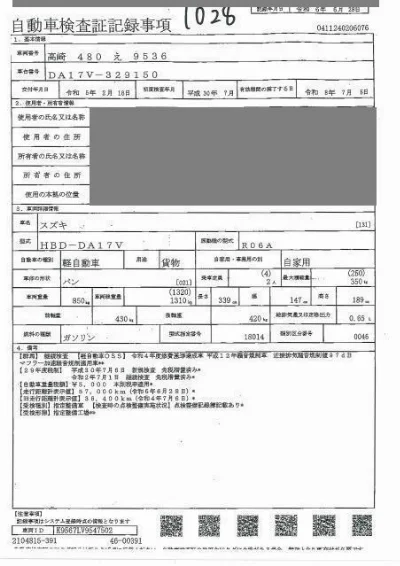 1028
記録年月日 令和 6年 6月 28日
自動車検査証記録事項
0411240206076
1. 基本情報
車両番号 高崎 480 え 9536
車台番号 DA17V-329150
交付年月日 令和 5年 2月 16日 初度検査年月 平成 30年 7月 有効期間の満了する日 令和 8年 7月 5日
2. 使用者・所有者情報
使用者の氏名又は名称
使用者の住所
所有者の氏名又は名称
所有者の住所
使用の本拠の位置
3. 車両詳細情報
車名 スズキ [131]
型式 HBD-DA17V 原動機の型式 R06A
自動車の種別 軽自動車 用途 貨物 自家用・事業用の別 自家用
車体の形状 バン [021] 乗車定員 (4) 2人 最大積載量 (250) 350kg
車両重量 850kg 車両総重量 (1320) 1310kg 長さ 339cm 幅 147cm 高さ 189cm
前軸重 430kg 後軸重 420kg 総排気量又は定格出力 0.65L
燃料の種類 ガソリン 型式指定番号 18014 類別区分番号 0046
4. 備考
[群馬] 継続検査 [軽自動車OSS]
マフラー加速騒音規制適用車**
平成30年7月6日 新規検査
[自動車重量税額] ¥5,000 本則税率適用*
[走行距離計表示値] 57,000km (令和6年6月28日)*
[受検種別] 指定整備車 [検査時の点検整備実施状況] 点検整備記録簿記載あり*
[受検形態] 指定整備工場**
[注意事項]
記録事項はシステム登録時点の情報となります
車両ID E9567LV9547502
2104815-391 46-00391